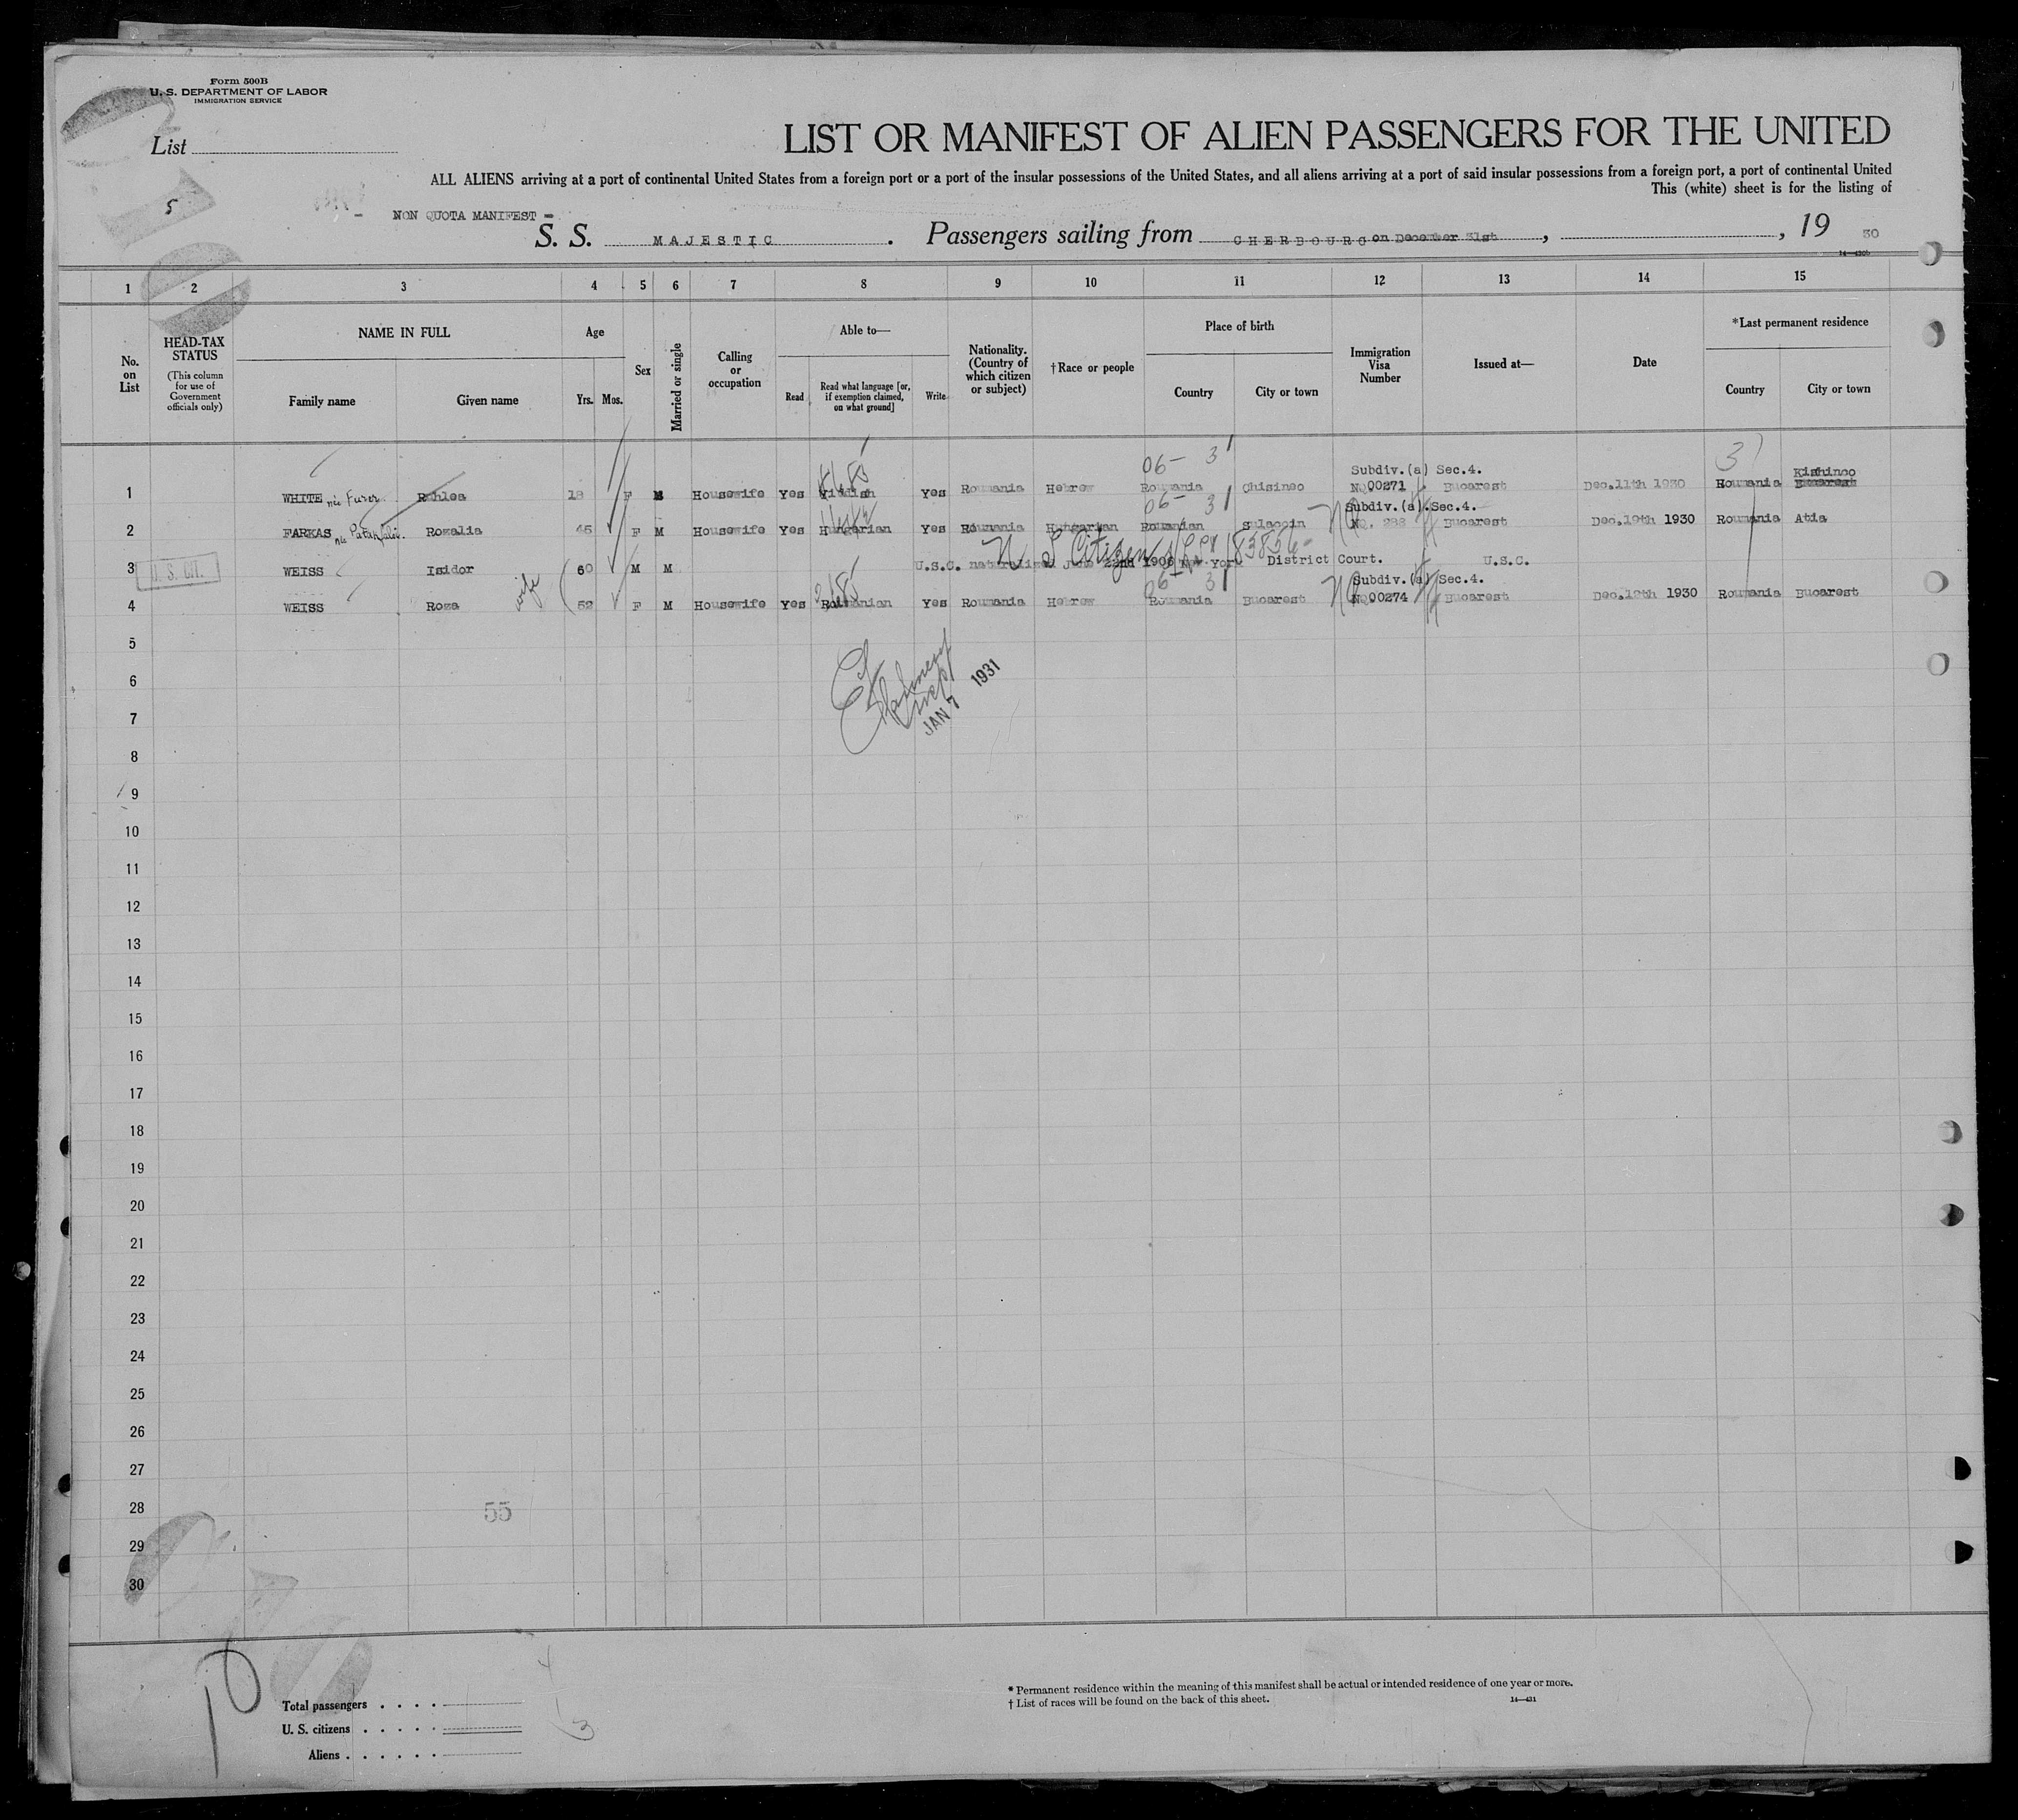 Form 500B
U. S. DEPARTMENT OF LABOR
IMMIGRATION SERVICE
List
LIST OR MANIFEST OF ALIEN PASSENGERS FOR THE UNITED
ALL ALIENS arriving at a port of continental United States from a foreign port or a port of the insular possessions of the United States, and all aliens arriving at a port of said insular possessions from a foreign port, a port of continental United
This (white) sheet is for the listing of
5
NON QUOTA MANIFEST -
S. S. MAJESTIC. Passengers sailing from CHERBOURG on December 31st, , 19 30
1 2 3 4 5 6 7 8 9 10 11 12 13 14 15
No. on List
HEAD-TAX STATUS
(This column for use of Government officials only)
NAME IN FULL
Family name Given name
Age
Yrs. Mos.
Sex
Married or single
Calling or occupation
Able to—
Read
Read what language [or, if exemption claimed, on what ground]
Write
Nationality. (Country of which citizen or subject)
†Race or people
Place of birth
Country City or town
Immigration Visa Number
Issued at—
Date
*Last permanent residence
Country City or town
06- 3 Subdiv.(a) Sec.4. Kishineo
1 WHITE née Furer 18 F Housewife Yes Yiddish Yes Roumania Hebrew Roumania Chisineo NQ00271 Bucarest Dec.11th 1930 Roumania Bucarest
06- 3 Subdiv.(a).Sec.4.
2 FARKAS née Rozalia 45 F M Housewife Yes Hungarian Yes Roumania Hungarian Roumanian NQ. 288 Bucarest Dec.19th 1930 Roumania Atia
U. S. Citizen
3 U. S. CIT. WEISS Isidor 60 M M U.S.C. naturalised June 22nd 1906 New York District Court. U.S.C.
06- 3 Subdiv.(a) Sec.4.
4 WEISS Roza wife 52 F M Housewife Yes Roumanian Yes Roumania Hebrew Roumania Bucarest NQ00274 Bucarest Dec.12th 1930 Roumania Bucarest
5
6
JAN 7 1931
7
8
9
10
11
12
13
14
15
16
17
18
19
20
21
22
23
24
25
26
27
28 55
29
30
Total passengers
U. S. citizens
Aliens
4
1
3
* Permanent residence within the meaning of this manifest shall be actual or intended residence of one year or more.
† List of races will be found on the back of this sheet. 14—431